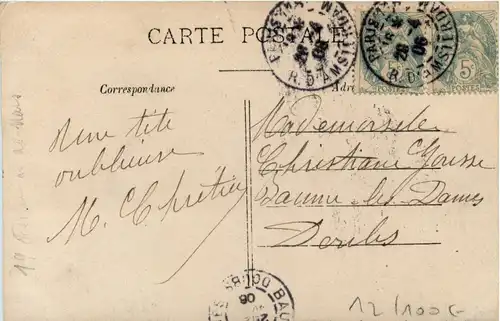 CARTE POSTALE
Correspondance
Adr
Une tête
oublieuse
M. Chrétien
Mademoiselle
Christiane Jousse
Baume-les-Dames
Doubs
PARIS
R. D'AMSTERDAM
28
06
PARIS
R. D'AMSTERDAM
28
06
5c
POSTES
BAU
DOUBS
06
12/100G